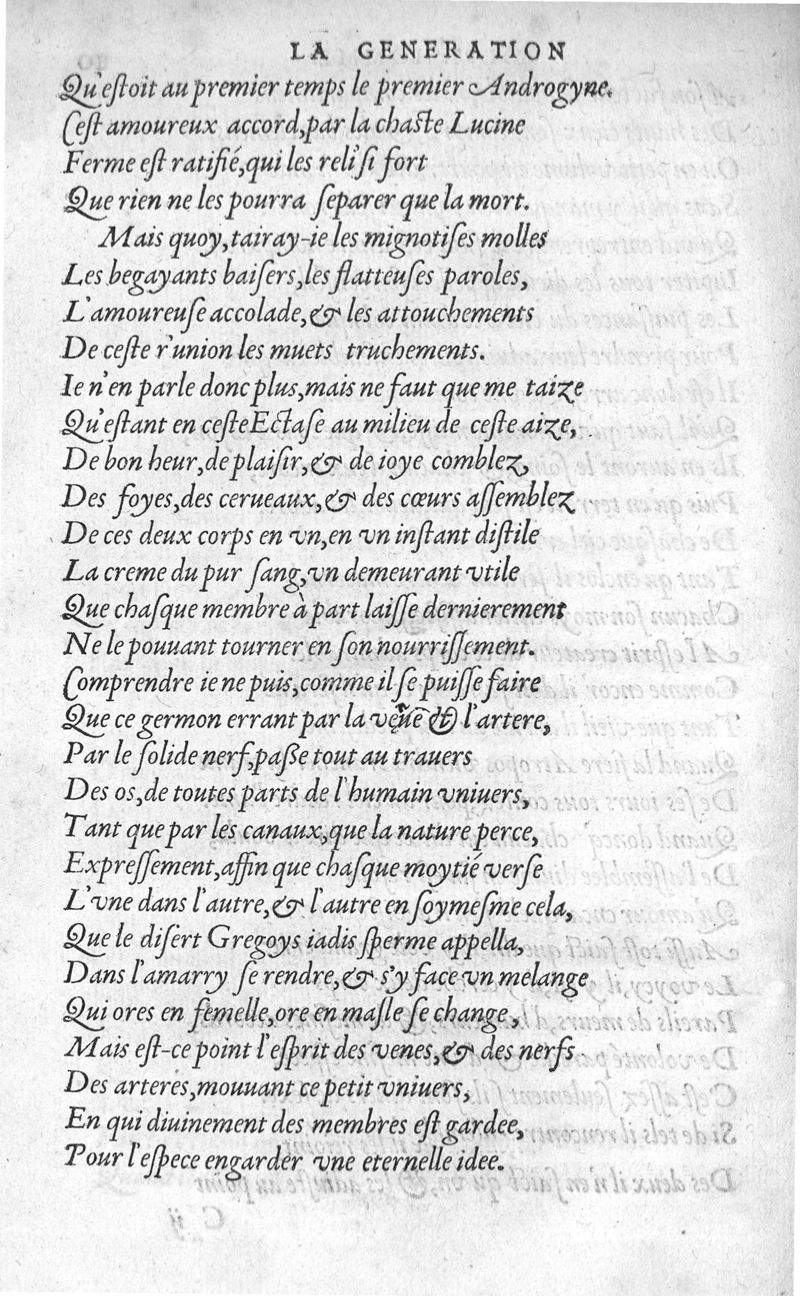 LA GENERATION
Qu'eſtoit au premier temps le premier Androgyne.
Ceſt amoureux accord, par la chaſte Lucine
Ferme eſt ratifié, qui les reli' ſi fort
Que rien ne les pourra ſeparer que la mort.
Mais quoy, tairay-ie les mignotiſes molles
Les begayants baiſers, les flatteuſes paroles,
L'amoureuſe accolade, & les attouchements
De ceſte r'union les muets truchements.
Ie n'en parle donc plus, mais ne faut que me taize
Qu'eſtant en ceſte Ectaſe au milieu de ceſte aize,
De bon heur, de plaiſir, & de ioye comblez,
Des foyes, des cerueaux, & des cœurs aſſemblez
De ces deux corps en vn, en vn inſtant diſtile
La creme du pur ſang, vn demeurant vtile
Que chaſque membre à part laiſſe dernierement
Ne le pouuant tourner en ſon nourriſſement.
Comprendre ie ne puis, comme il ſe puiſſe faire
Que ce germon errant par la & l'artere,
Par le ſolide nerf, paße tout au trauers
Des os, de toutes parts de l'humain vniuers,
Tant que par les canaux, que la nature perce,
Expreſſement, affin que chaſque moytié verſe
L'vne dans l'autre, & l'autre en ſoymeſme cela,
Que le diſert Gregoys iadis ſperme appella,
Dans l'amarry ſe rendre, & s'y face vn melange
Qui ores en femelle, ore en maſle ſe change,
Mais eſt-ce point l'eſprit des venes, & des nerfs
Des arteres, mouuant ce petit vniuers,
En qui diuinement des membres eſt gardee,
Pour l'eſpece engarder vne eternelle idee.